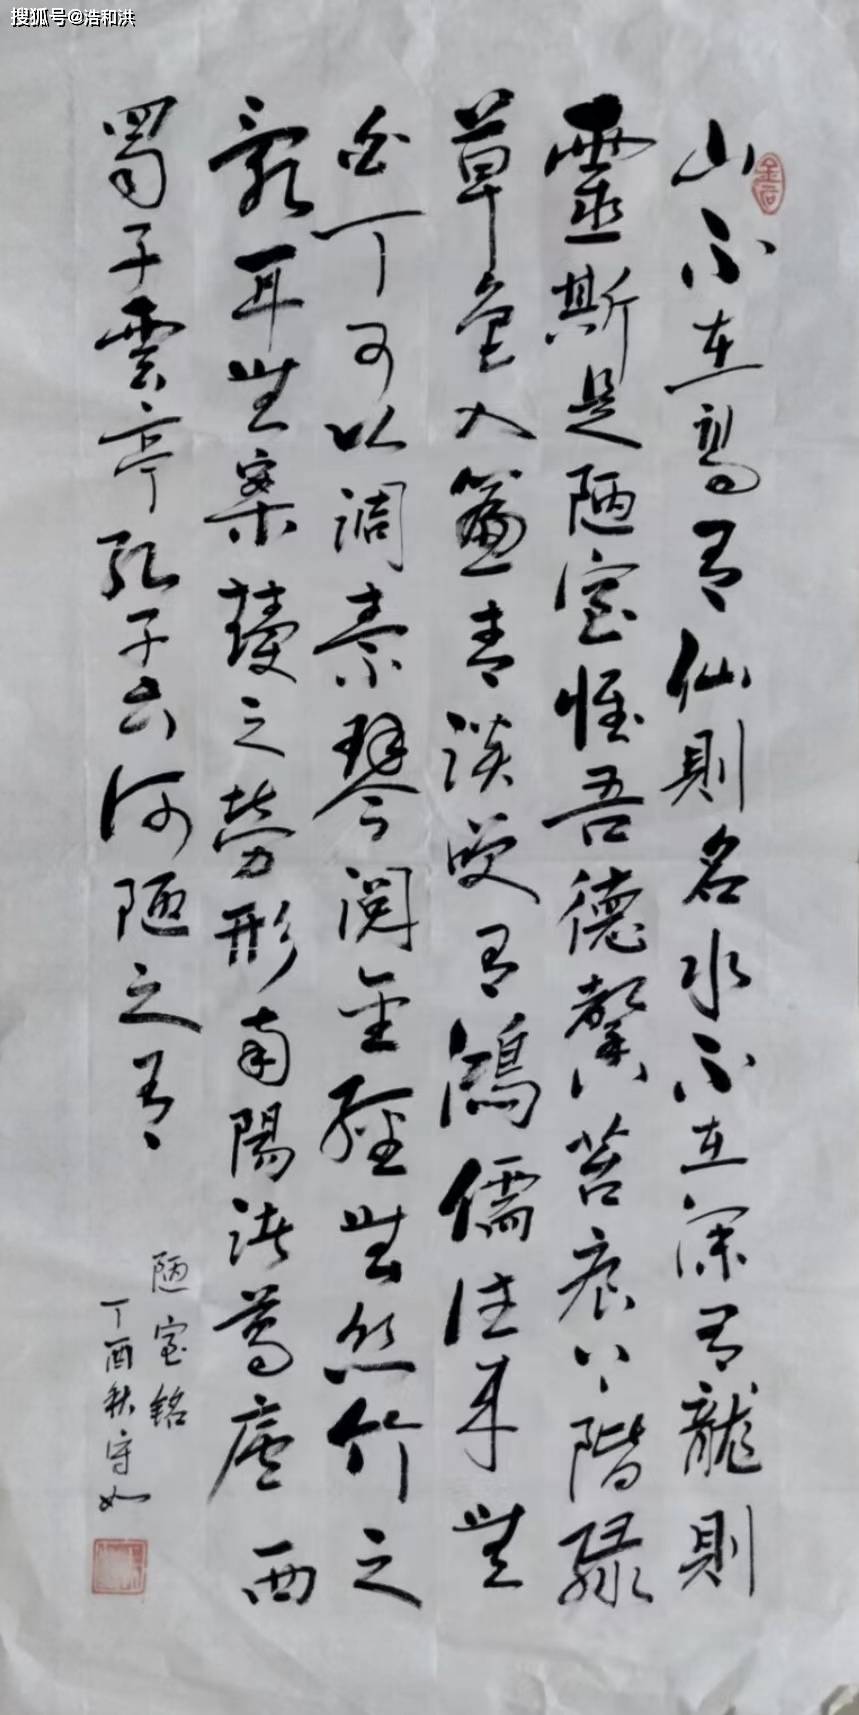 搜狐号@浩和洪
金石
山不在高有仙則名水不在深有龍則
靈斯是陋室惟吾德馨苔痕上階綠
草色入簾青談笑有鴻儒往来無
白丁可以調素琴閱金經無丝竹之
亂耳無案牘之勞形南陽諸葛廬西
蜀子雲亭孔子云何陋之有
陋室銘
丁酉秋守如